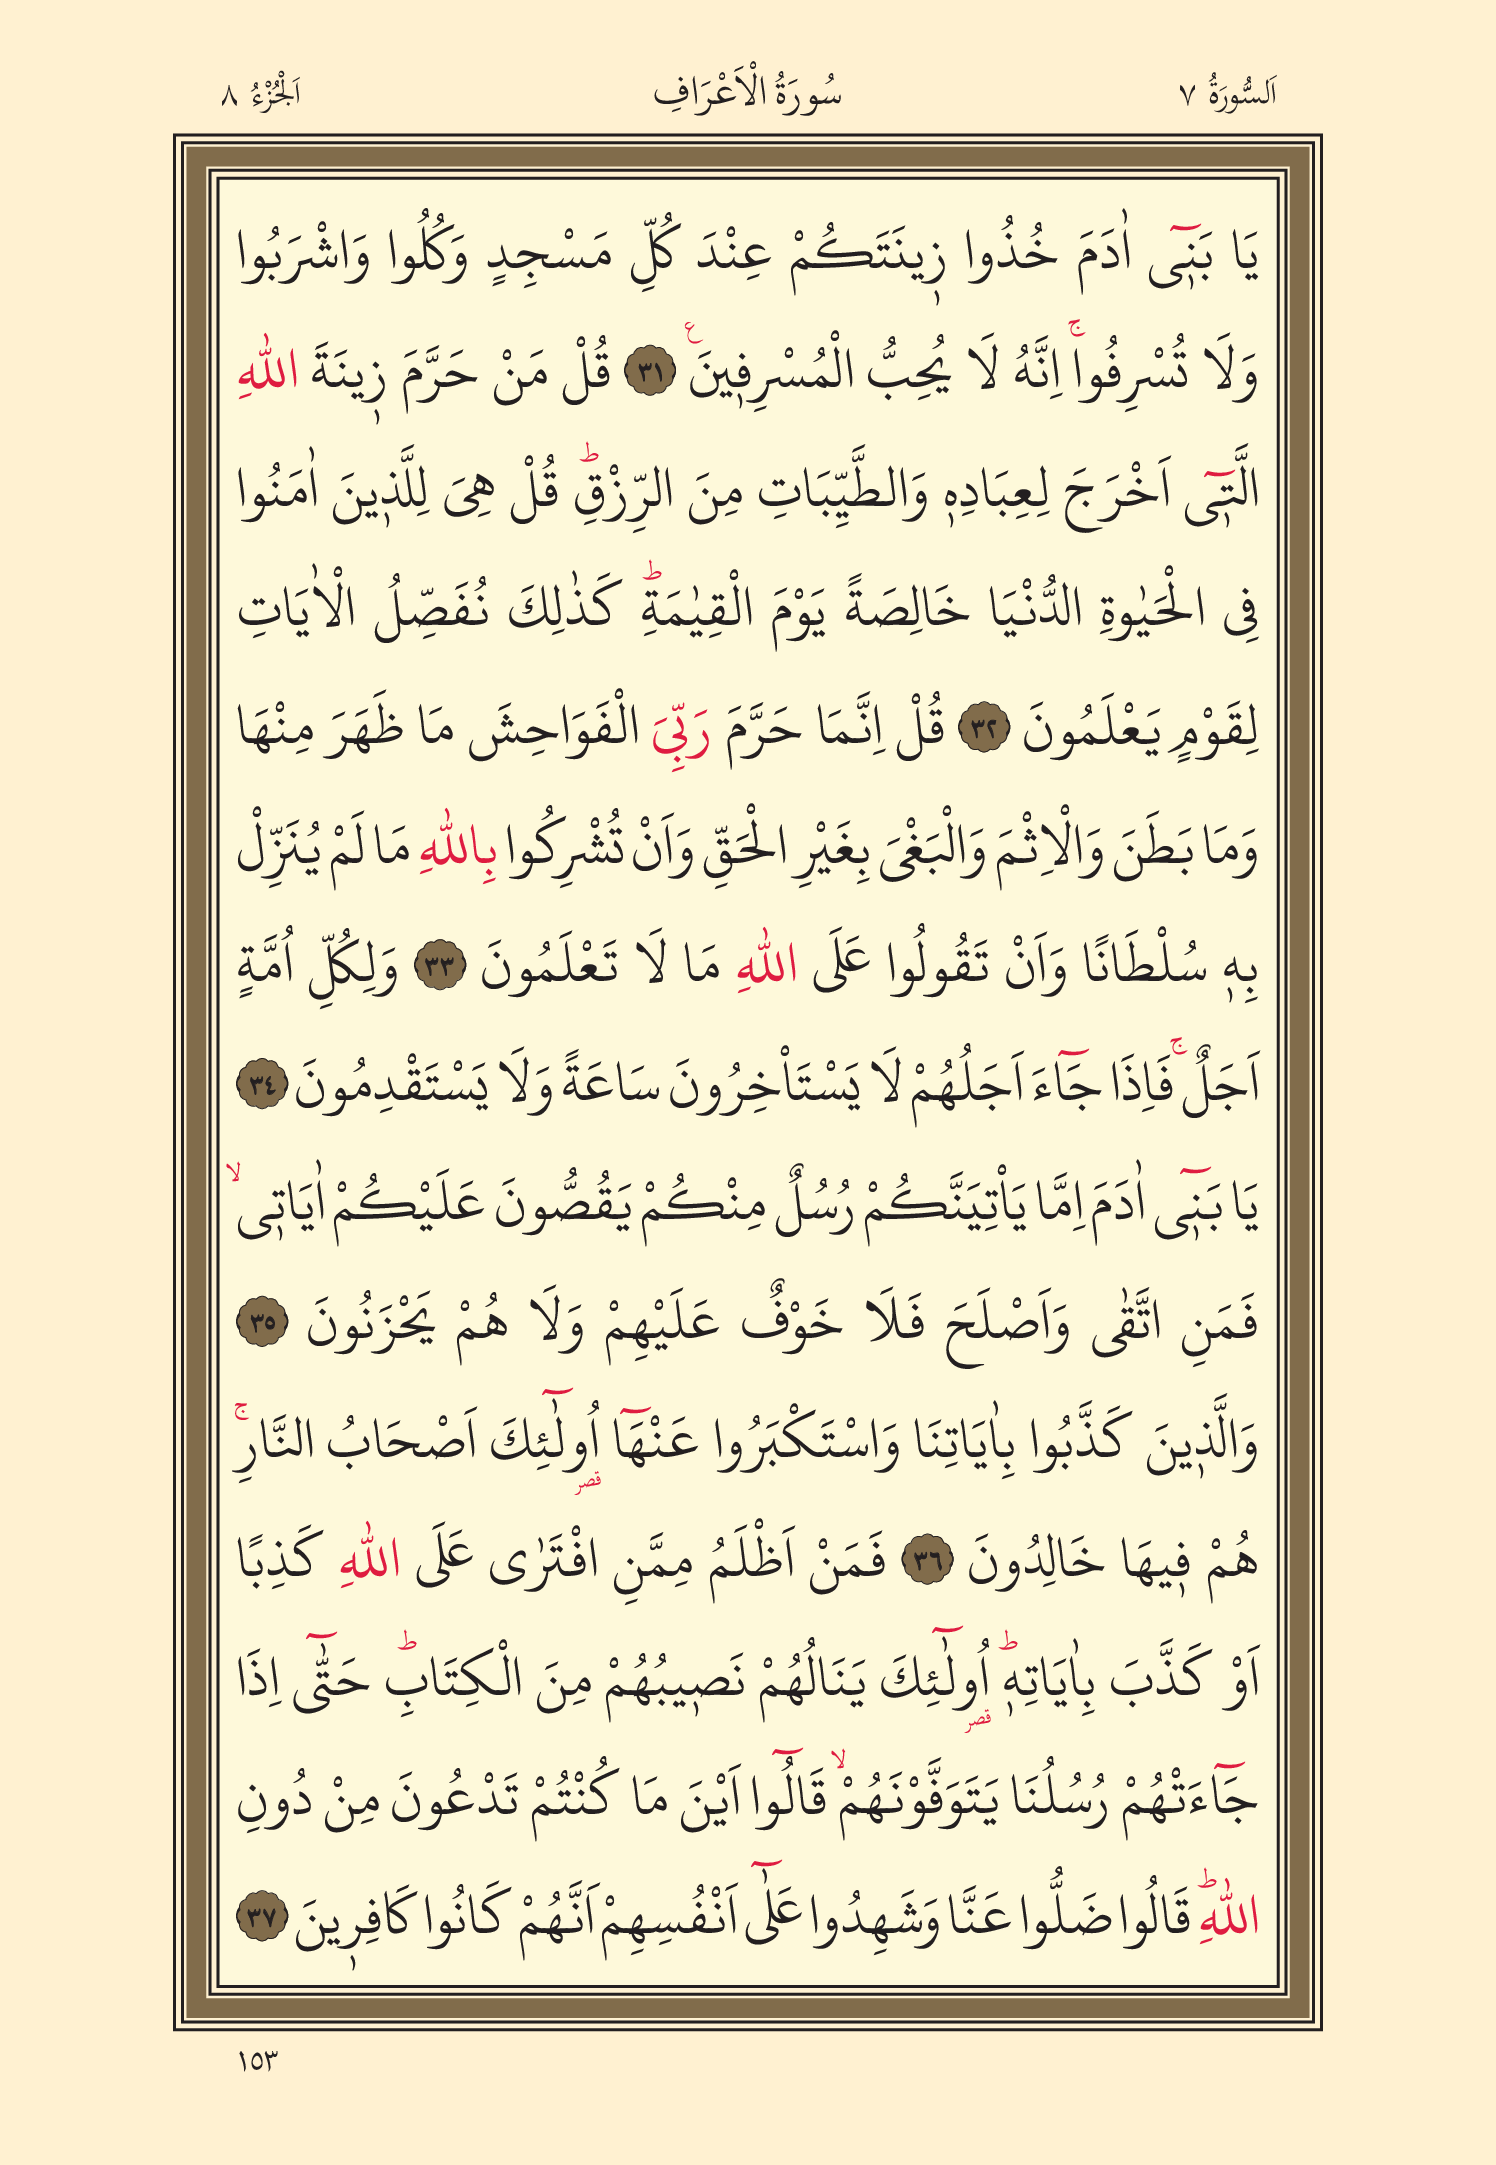 اَلسُّورَةُ ٧ سُورَةُ الْاَعْرَافِ اَلْجُزْءُ ٨
يَا بَنٖٓى اٰدَمَ خُذُوا زٖينَتَكُمْ عِنْدَ كُلِّ مَسْجِدٍ وَكُلُوا وَاشْرَبُوا
وَلَا تُسْرِفُواۚ اِنَّهُ لَا يُحِبُّ الْمُسْرِفٖينَ ࣖ ٣١ قُلْ مَنْ حَرَّمَ زٖينَةَ اللّٰهِ
الَّتٖٓى اَخْرَجَ لِعِبَادِهٖ وَالطَّيِّبَاتِ مِنَ الرِّزْقِؕ قُلْ هِىَ لِلَّذٖينَ اٰمَنُوا
فِى الْحَيٰوةِ الدُّنْيَا خَالِصَةً يَوْمَ الْقِيٰمَةِؕ كَذٰلِكَ نُفَصِّلُ الْاٰيَاتِ
لِقَوْمٍ يَعْلَمُونَ ٣٢ قُلْ اِنَّمَا حَرَّمَ رَبِّىَ الْفَوَاحِشَ مَا ظَهَرَ مِنْهَا
وَمَا بَطَنَ وَالْاِثْمَ وَالْبَغْىَ بِغَيْرِ الْحَقِّ وَاَنْ تُشْرِكُوا بِاللّٰهِ مَا لَمْ يُنَزِّلْ
بِهٖ سُلْطَانًا وَاَنْ تَقُولُوا عَلَى اللّٰهِ مَا لَا تَعْلَمُونَ ٣٣ وَلِكُلِّ اُمَّةٍ
اَجَلٌۚ فَاِذَا جَٓاءَ اَجَلُهُمْ لَا يَسْتَاْخِرُونَ سَاعَةً وَلَا يَسْتَقْدِمُونَ ٣٤
يَا بَنٖٓى اٰدَمَ اِمَّا يَاْتِيَنَّكُمْ رُسُلٌ مِنْكُمْ يَقُصُّونَ عَلَيْكُمْ اٰيَاتٖىۙ
فَمَنِ اتَّقٰى وَاَصْلَحَ فَلَا خَوْفٌ عَلَيْهِمْ وَلَا هُمْ يَحْزَنُونَ ٣٥
وَالَّذٖينَ كَذَّبُوا بِاٰيَاتِنَا وَاسْتَكْبَرُوا عَنْهَٓا اُولٰٓئِكَ اَصْحَابُ النَّارِۚ
قصر
هُمْ فٖيهَا خَالِدُونَ ٣٦ فَمَنْ اَظْلَمُ مِمَّنِ افْتَرٰى عَلَى اللّٰهِ كَذِبًا
اَوْ كَذَّبَ بِاٰيَاتِهٖؕ اُولٰٓئِكَ يَنَالُهُمْ نَصٖيبُهُمْ مِنَ الْكِتَابِؕ حَتّٰٓى اِذَا
قصر
جَٓاءَتْهُمْ رُسُلُنَا يَتَوَفَّوْنَهُمْۙ قَالُٓوا اَيْنَ مَا كُنْتُمْ تَدْعُونَ مِنْ دُونِ
اللّٰهِؕ قَالُوا ضَلُّوا عَنَّا وَشَهِدُوا عَلٰٓى اَنْفُسِهِمْ اَنَّهُمْ كَانُوا كَافِرٖينَ ٣٧
١٥٣